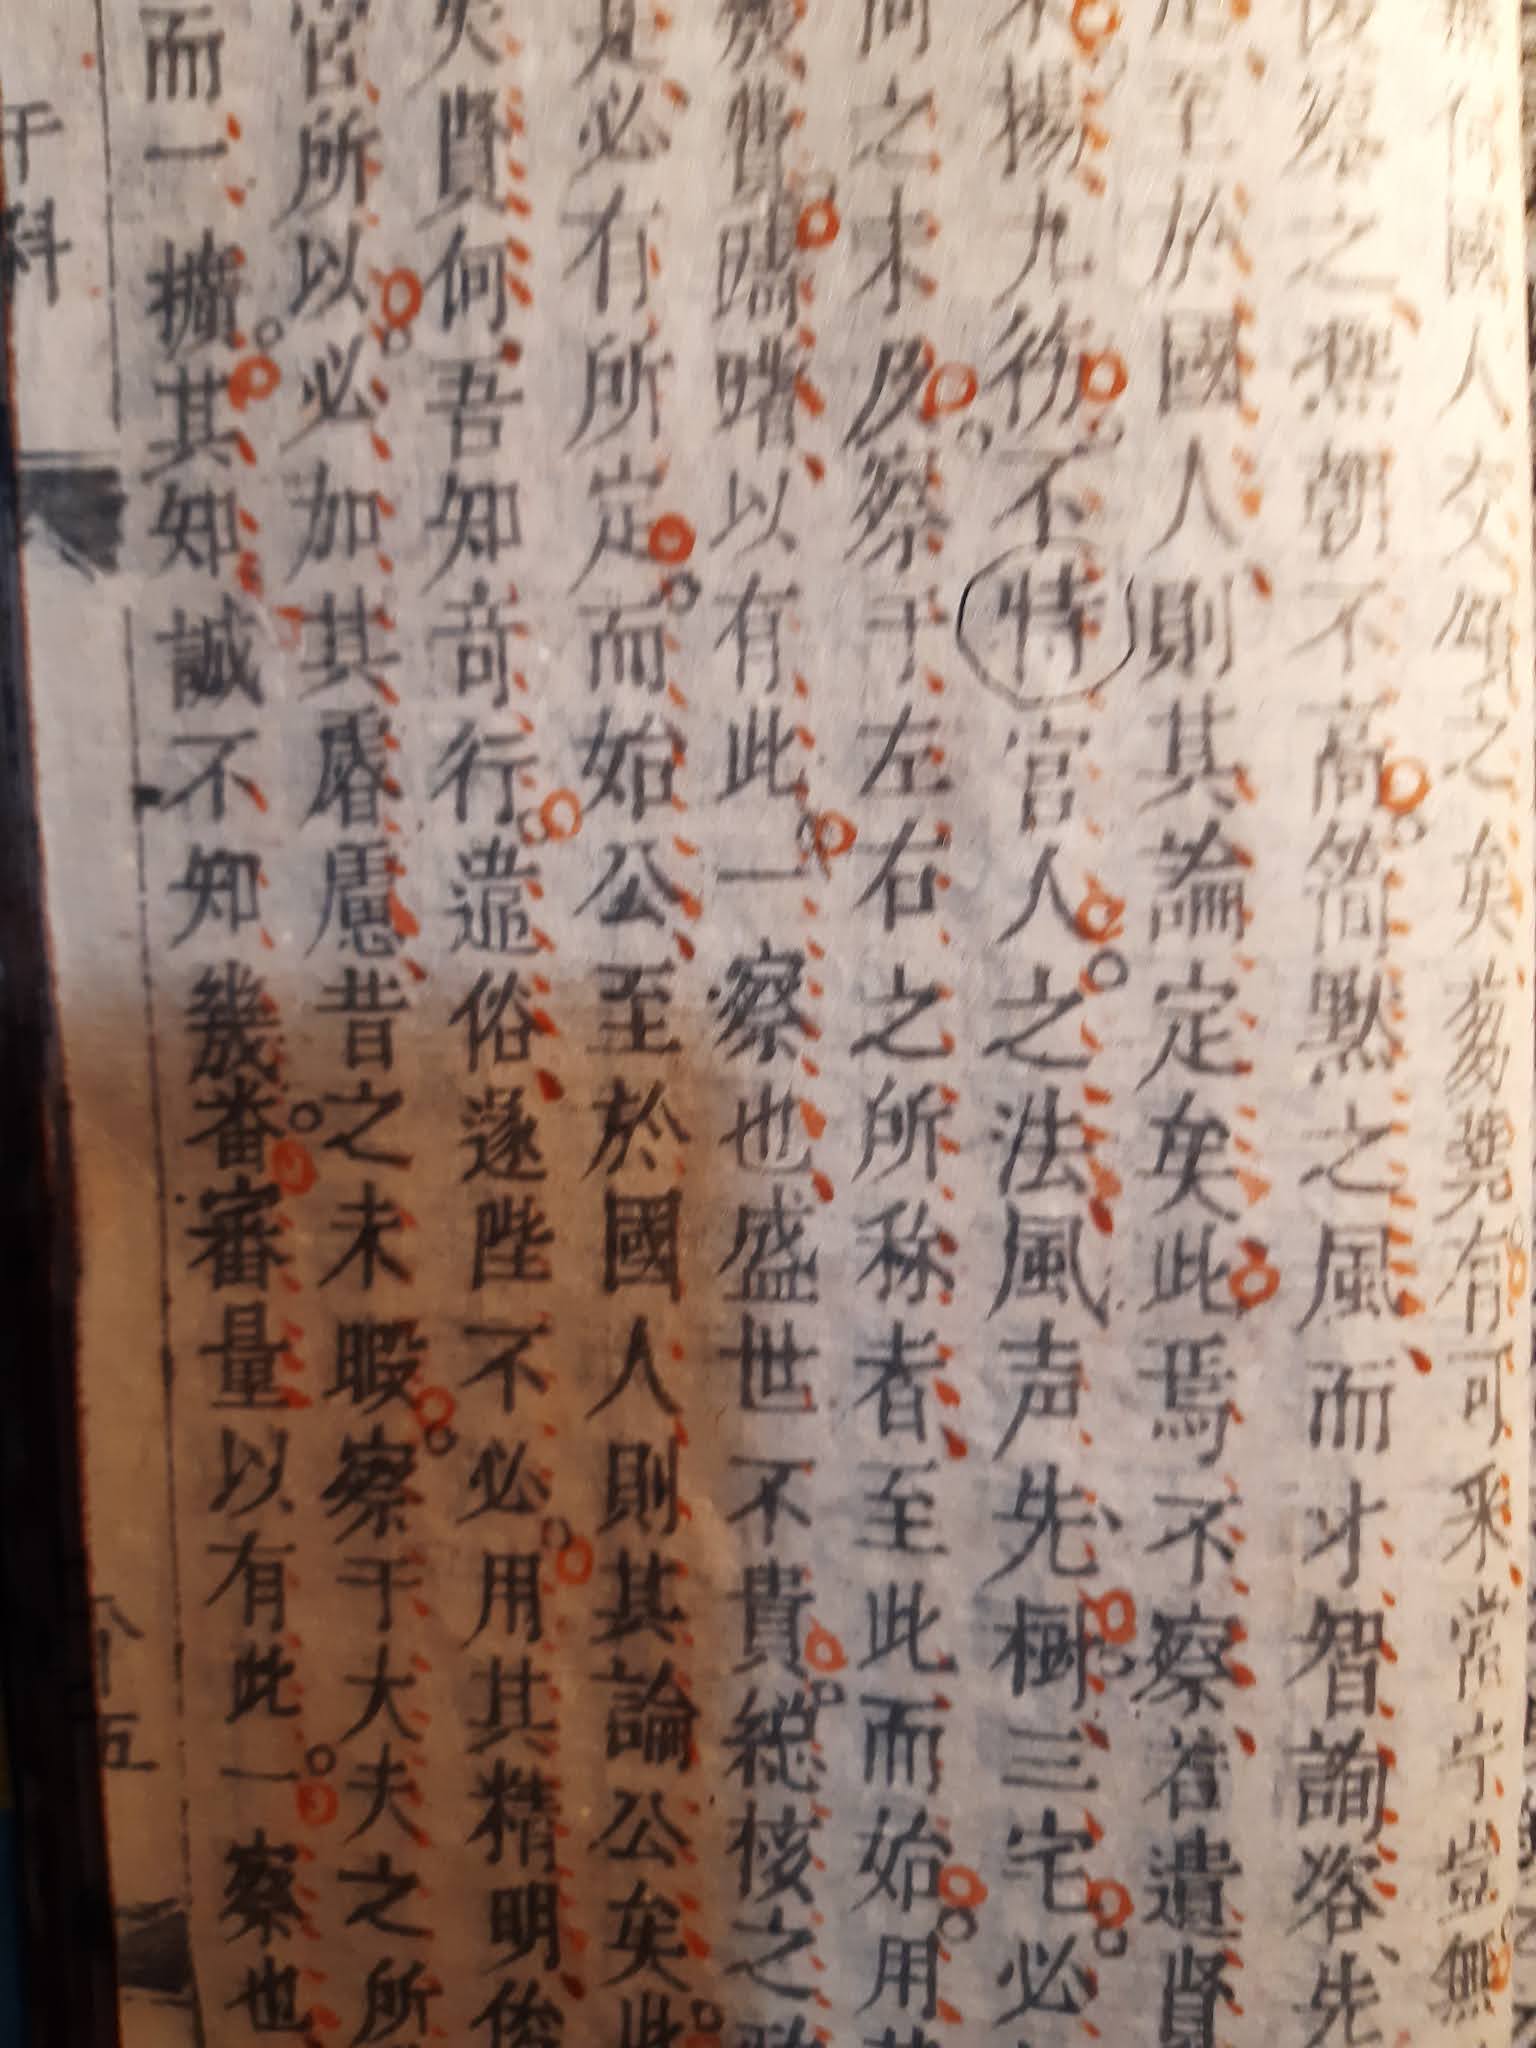 何國人交頌之矣芻蕘有可采當宁豈無
察之撫朝不高簡默之風而才智詢咨先
至於國人則其論定矣此焉不察若遺賢
揚九徼不特官人之法風声先樹三宅必
間之未及察于左右之所称者至此而始用
賢曙以有此一察也盛世不貴綜核之
必有所定而始公至於國人則其論公矣此
矣賢何吾知奇行遣俗遂陛不必用其精明俊
官所以必加其睿慮昔之未暇察于大夫之所
而一擴其知誠不知幾番審量以有此一察也
干科
五